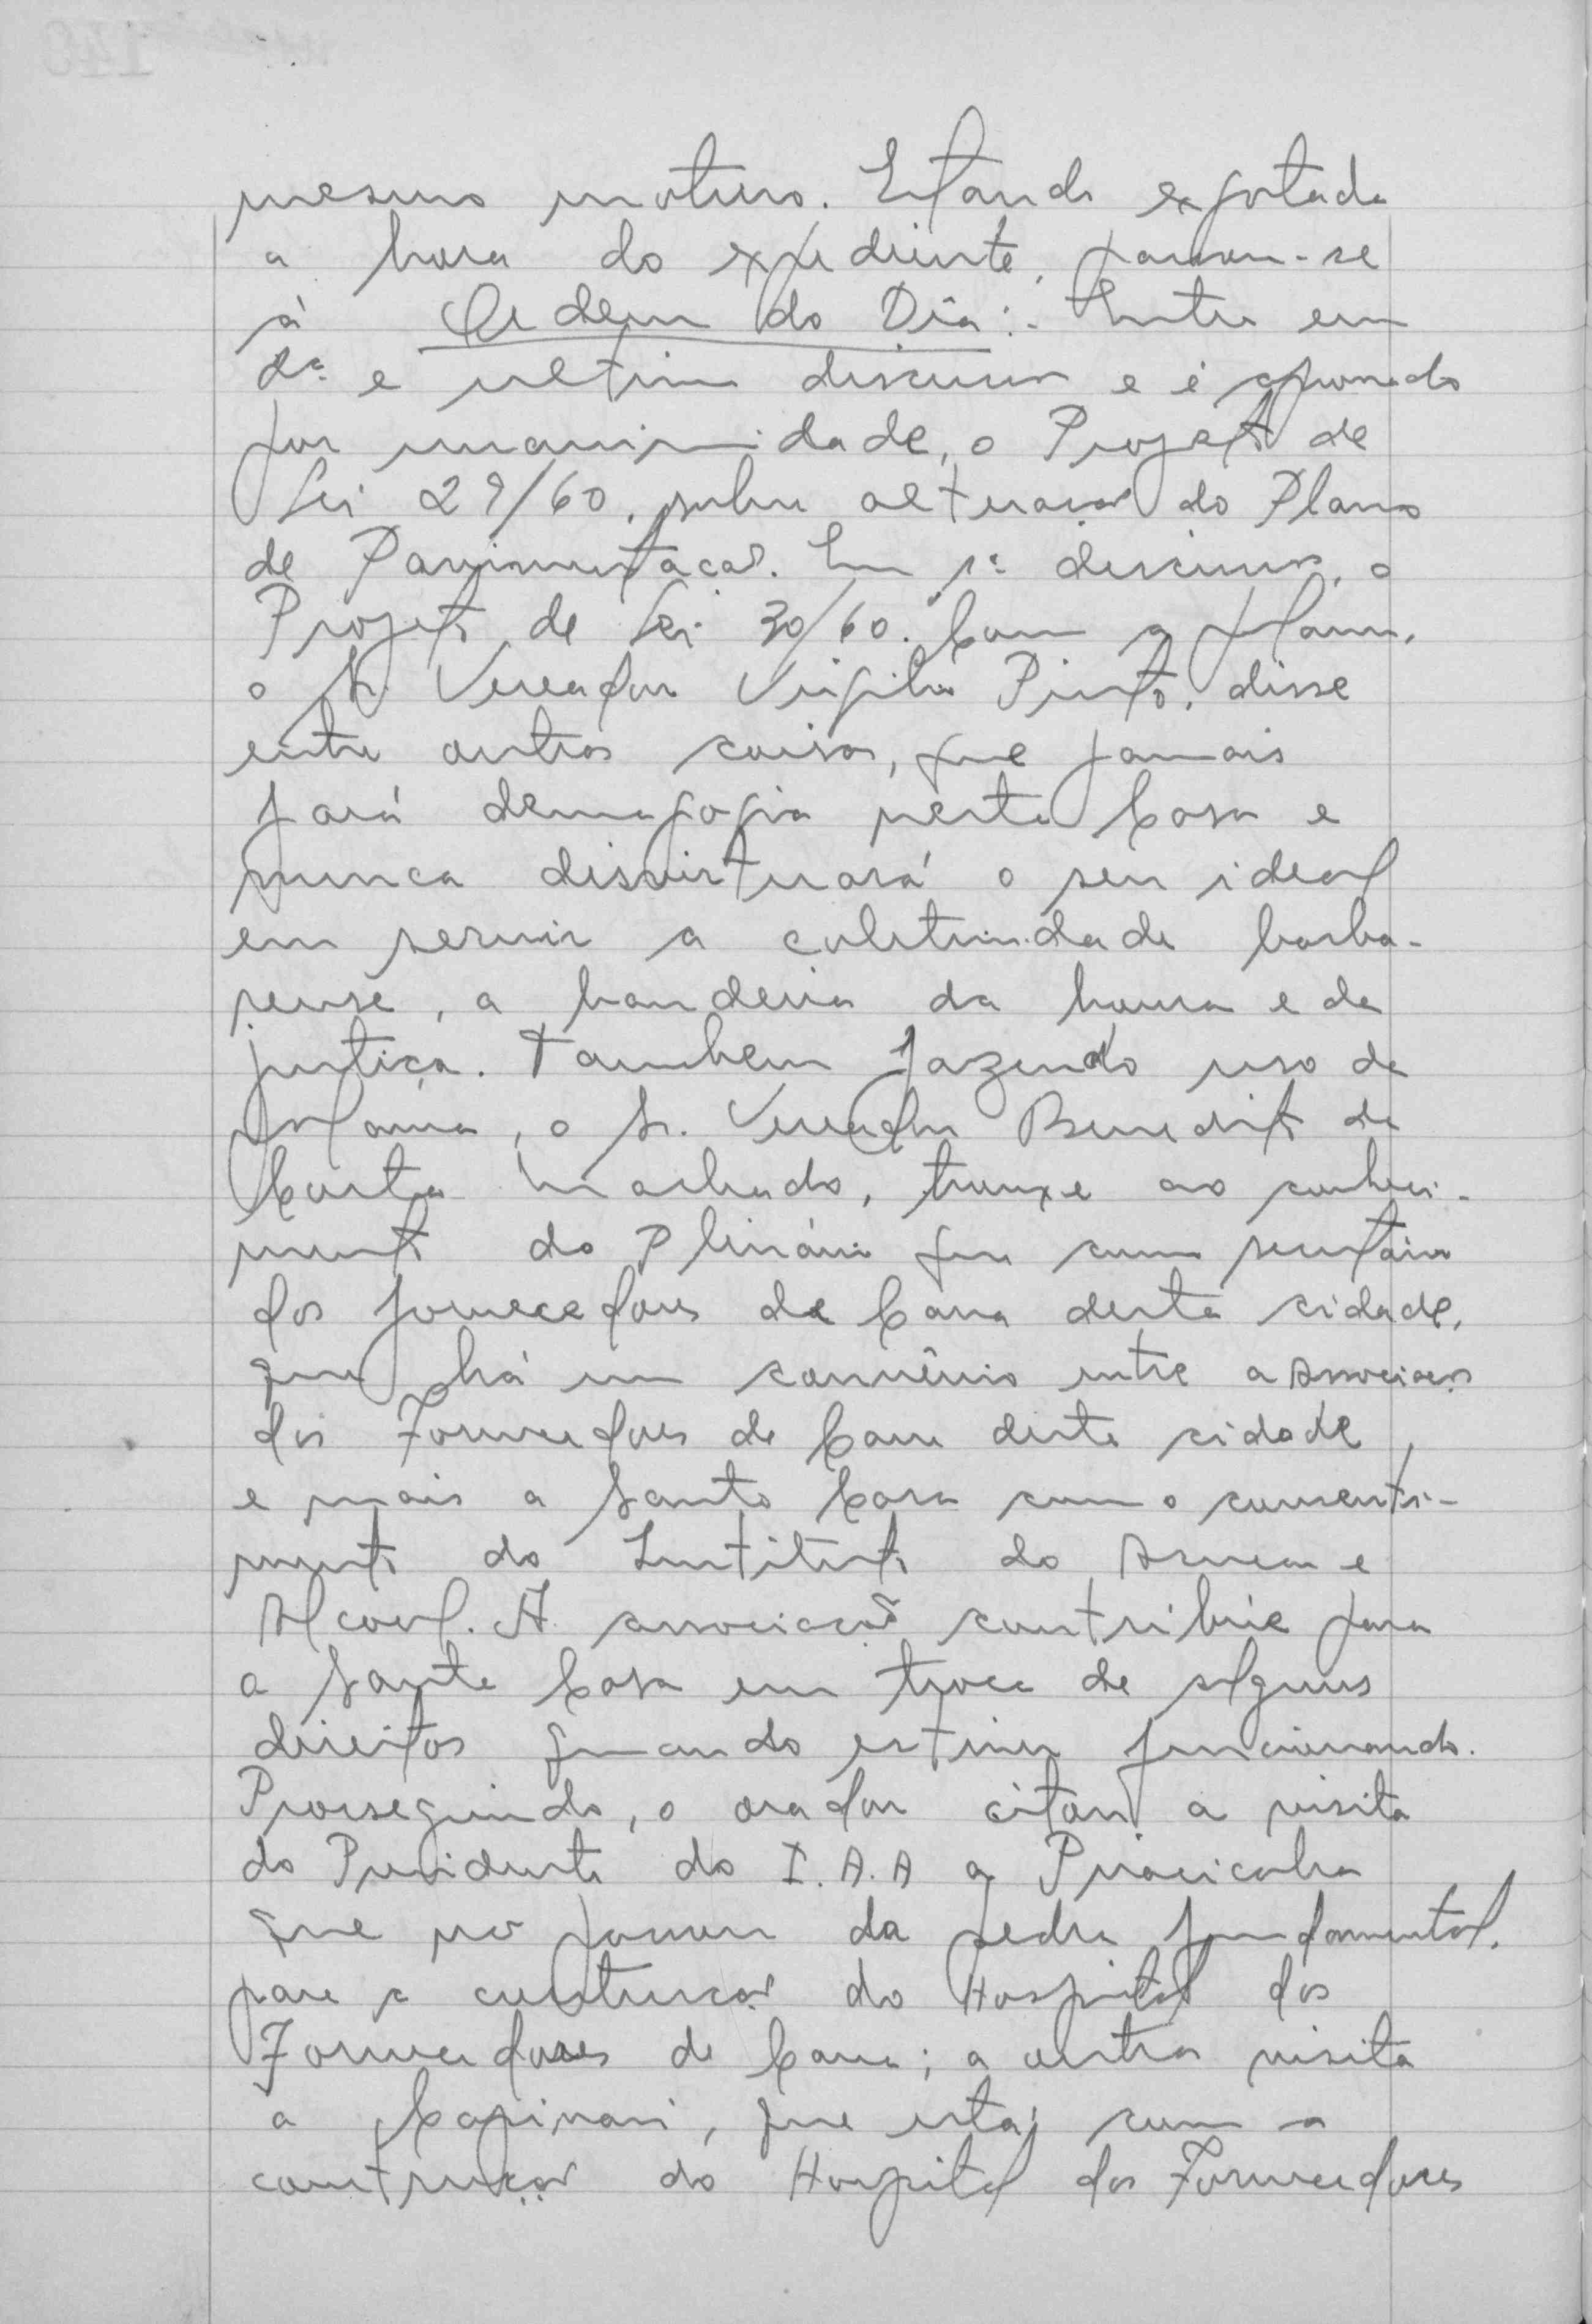 mesmo motivo. Estando esgotada
a hora do expediente, passou-se
à Ordem do Dia:- Entra em
2ª e ultima discussão e é aprovado
por unanimidade, o Projeto de
Lei 29/60, sobre alteração do Plano
de Pavimentação. Em 1ª discussão, o
Projeto de Lei 30/60. Com a palavra,
o Sr. Vereador Virgilio Pinto, disse
entre outras coisas, que jamais
fará demagogia nesta Casa e
nunca disvirtuará o seu ideal
em servir a coletividade barba-
rense, a bandeira da honra e da
justiça. Tambem fazendo uso da
palavra, o Sr. Vereador Benedito da
Costa Machado, trouxe ao conheci-
mento do Plenário que como secretário
dos fornecedores de Cana desta cidade,
que há um convênio entre a Associação
dos Fornecedores de Cana desta cidade,
e mais a Santa Casa com o consenti-
mento do Instituto do Assucar e
Alcool. A associação contribue para
a Santa Casa em troca de alguns
direitos quando estiver funcionando.
Prosseguindo, o orador citou a visita
do Presidente do I.A.A a Piracicaba
que no lançar da pedra fundamental,
para a construção do Hospital dos
Fornecedores de Cana; a outra visita
a Capivari, que está com a
construção do Hospital dos Fornecedores